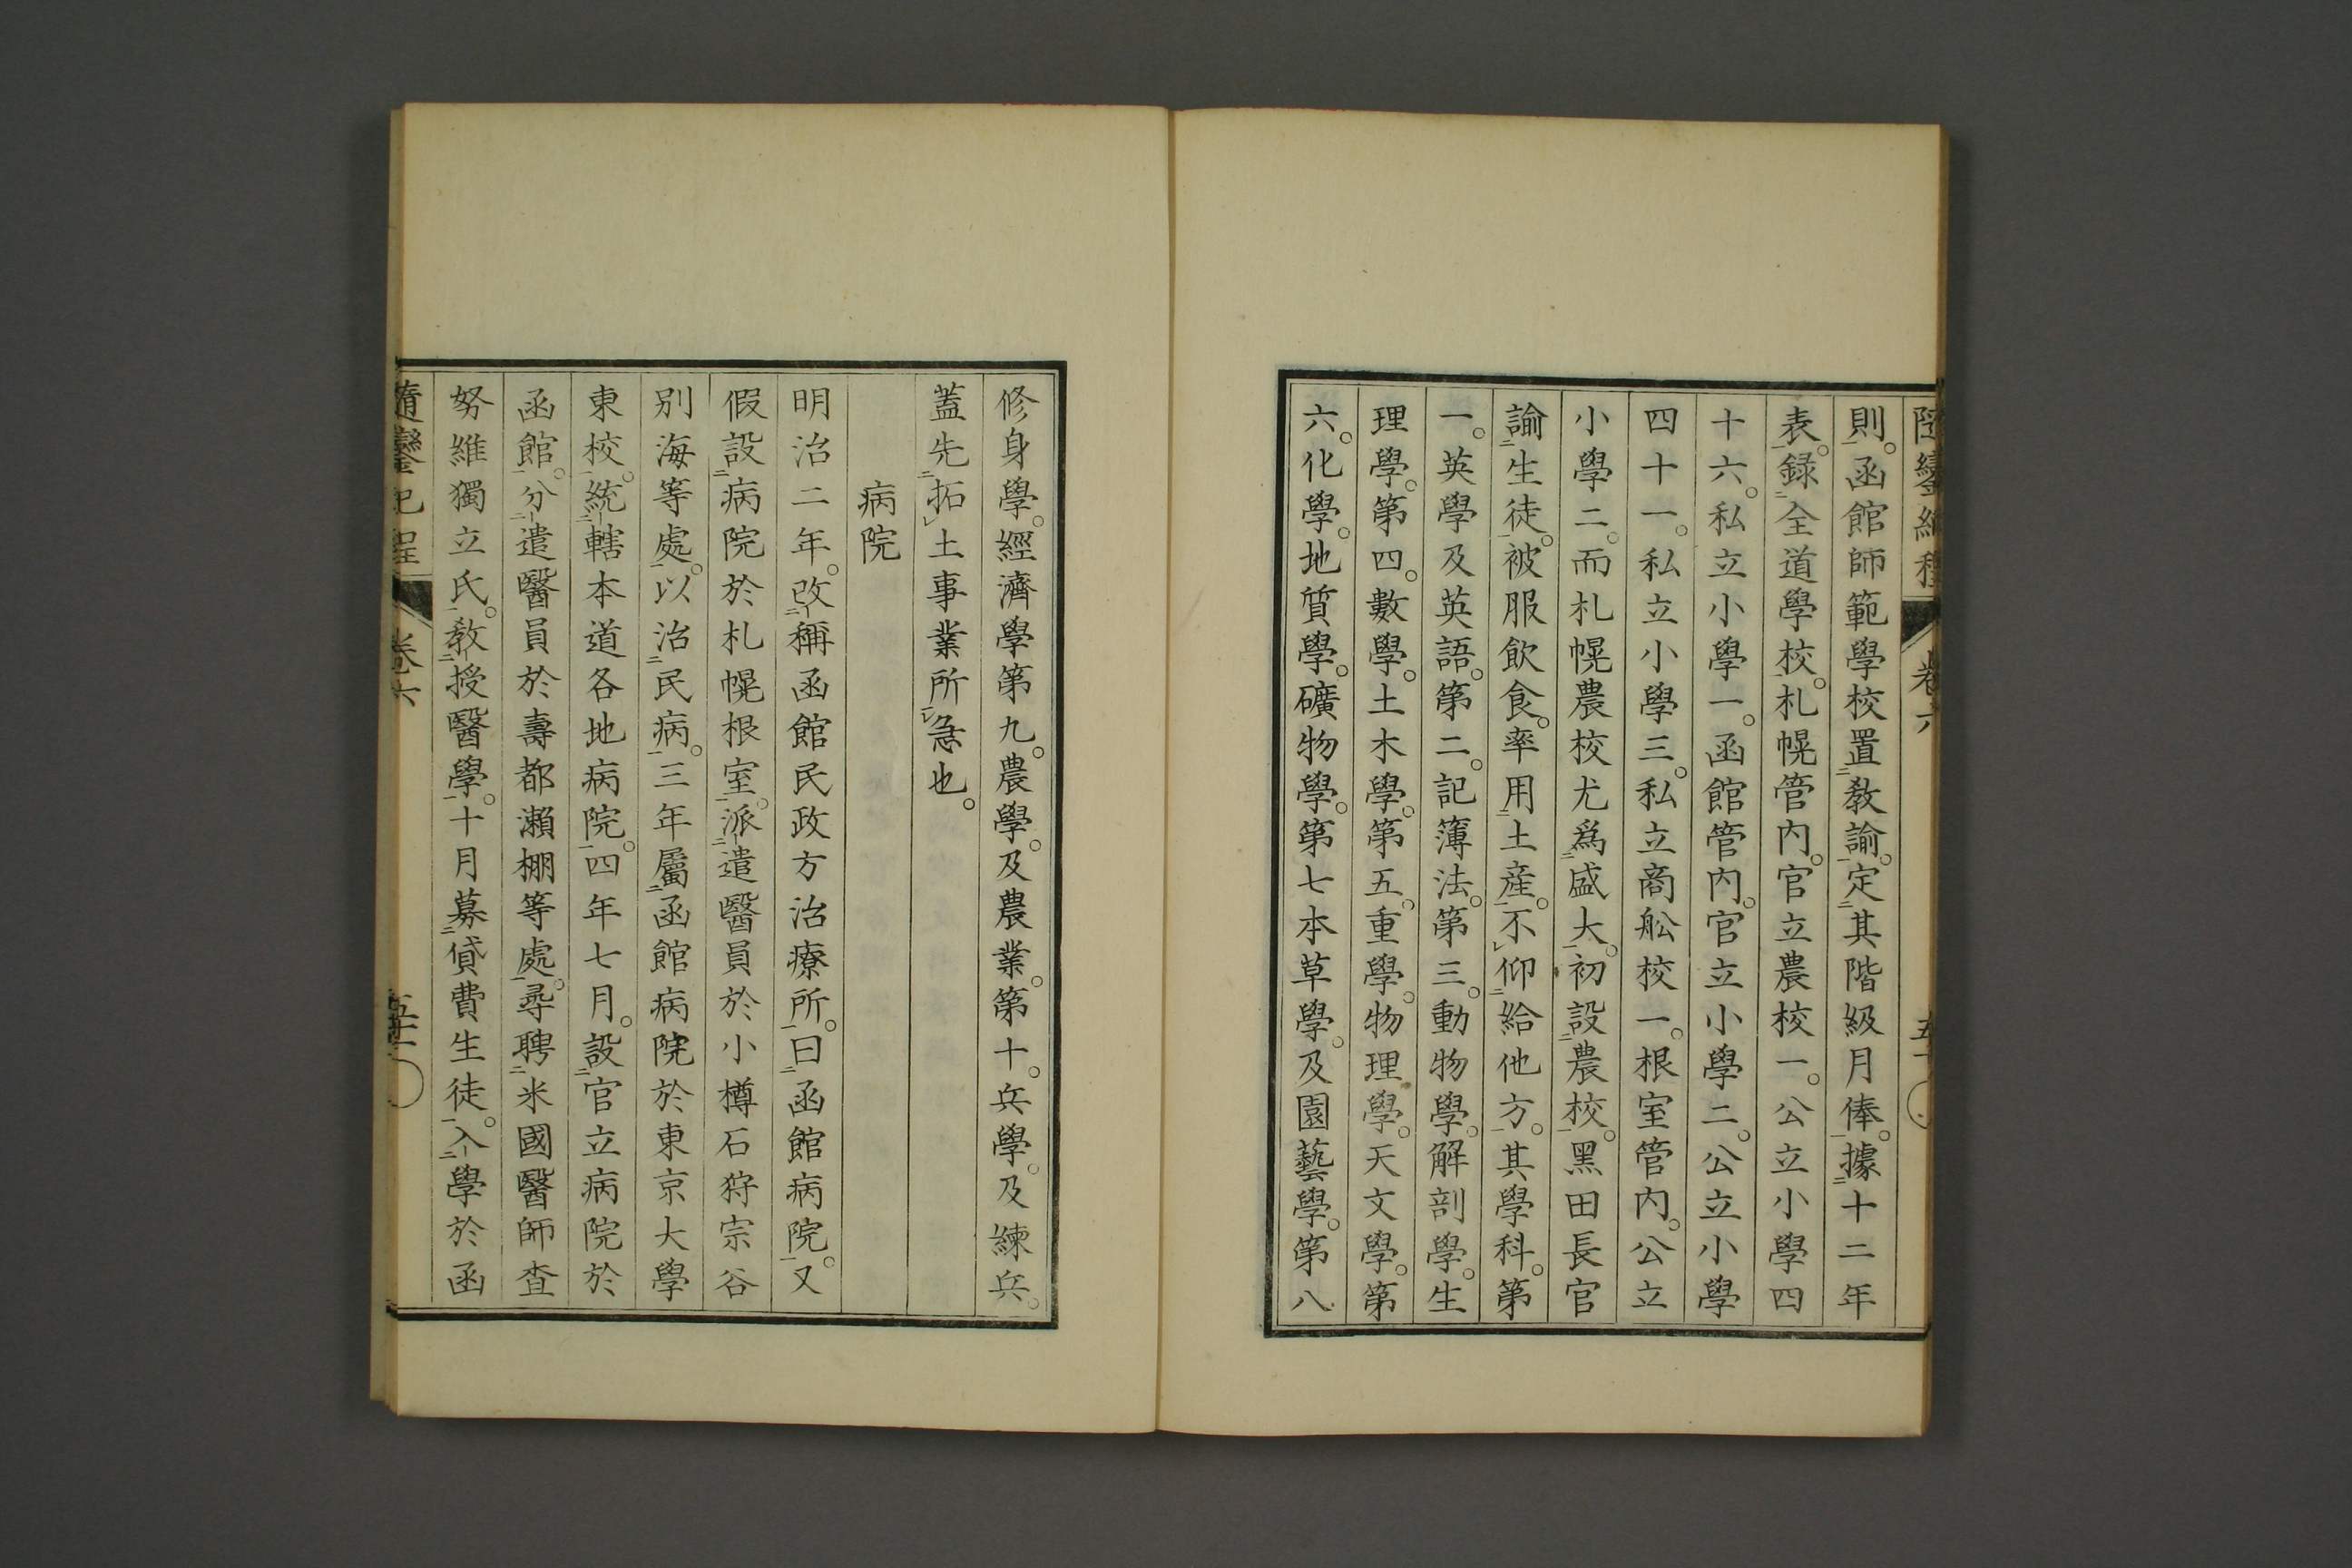 則。函館師範學校置敎諭。定其階級月俸。據十二年
表。録全道學校。札幌管内。官立農校一。公立小學四
十六。私立小學一。函館管内。官立小學二。公立小學
四十一。私立小學三。私立商舩校一。根室管内。公立
小學二。而札幌農校尤爲盛大。初設農校。黑田長官
諭生徒。被服飲食。率用土産。不仰給他方。其學科。第
一。英學及英語。第二。記簿法。第三。動物學。解剖學。生
理學。第四。數學。土木學。第五。重學。物理學。天文學。第
六。化學。地質學。礦物學。第七本草學。及園藝學。第八
修身學。經濟學第九。農學。及農業。第十。兵學。及練兵。
蓋先拓土事業所急也。
病院
明治二年。改稱函館民政方治療所。曰函館病院。又
假設病院於札幌根室。派遣醫員於小樽石狩宗谷
別海等處。以治民病。三年屬函館病院於東京大學
東校。統轄本道各地病院。四年七月。設官立病院於
函館。分遣醫員於壽都瀨棚等處。尋聘米國醫師査
努維獨立氏。敎授醫學。十月募貸費生徒。入學於函
隨鑾紀程 卷六